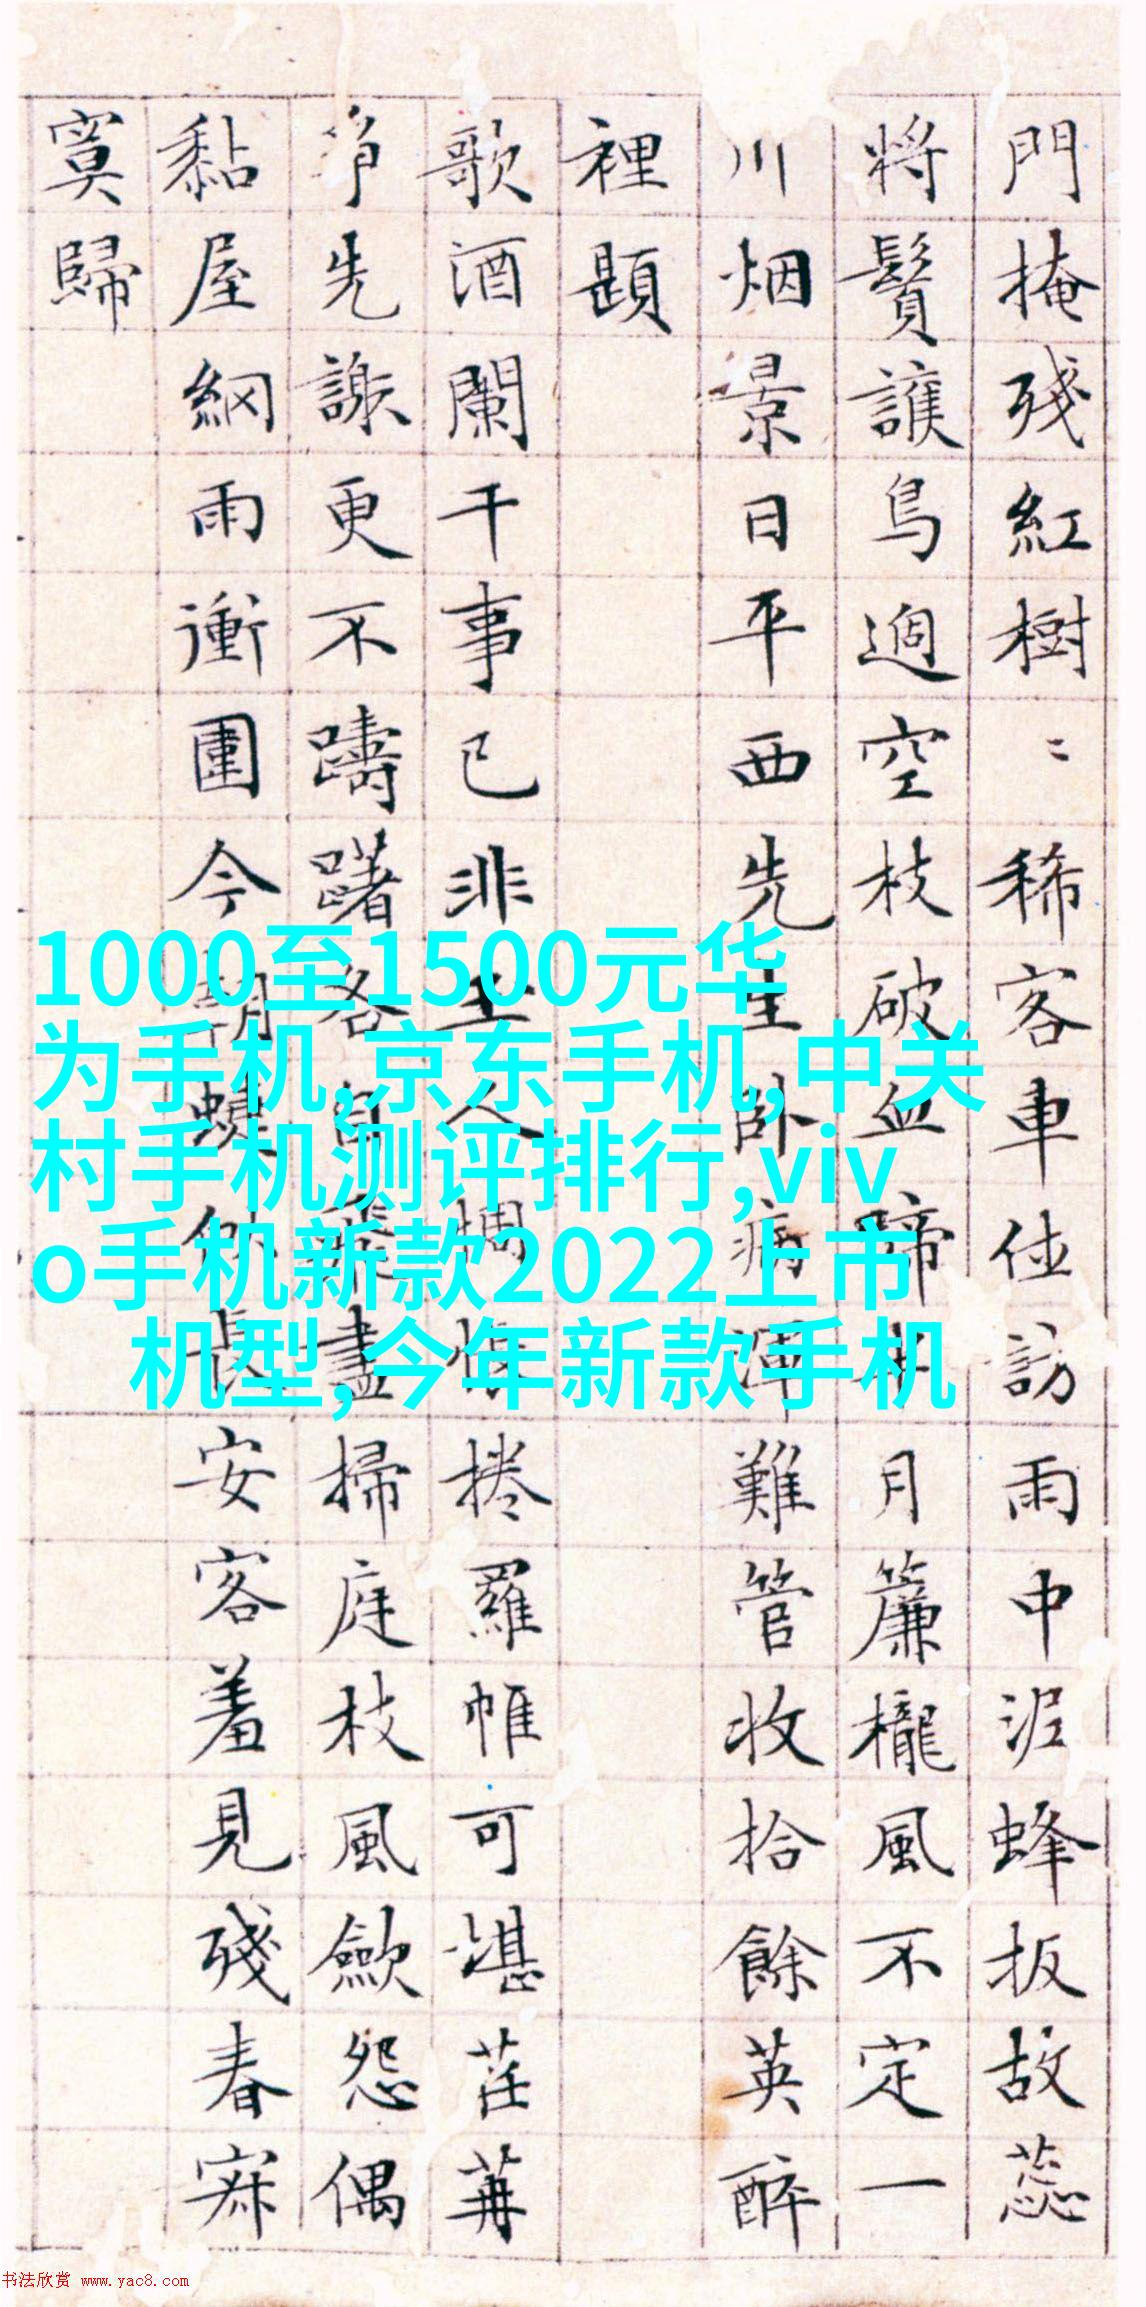 門掩殘紅樹〻稀客車位訪雨中泥蜂扳故蕊
將鬢護鳥過空枝破血啼月簾櫳風不定一
川烟景日平西先生卧病渾難管收拾餘英醉
裡題
歌酒闌干事已非坐人惆悵捲羅帷可堪荏苒
爭先謝更不躊躇各自飛盡掃庭枝風歛怨偶
黏屋網雨衝圍今朝長安客羞見殘春寂
寞歸
1000至1500元华
为手机,京东手机,中关
村手机测评排行,viv
o手机新款2022上市
机型,今年新款手机
书法欣赏 www.yac8.com